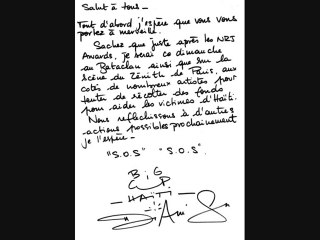 Salut à tous -
Tout d'abord j'espère que vous vous
portez à merveille.
Sachez que juste après les NRJ
Awards, je serai ce dimanche
au Bataclan ainsi que sur la
scène du Zénith de Paris, aux
cotés de nombreux artistes pour
tenter de récolter des fonds
pour aider les victimes d'Haïti.
Nous reflechissons à d'autres
actions possibles prochainement
je l'espère -
"S.O.S" "S.O.S"
BiG
UP
- HAÏTI -